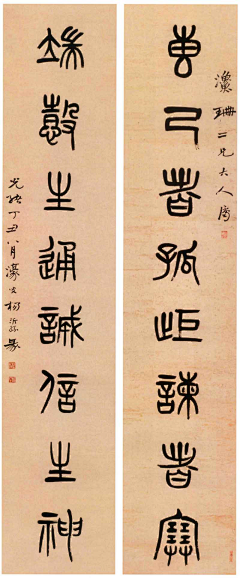 漁珊二兄大人屬
叀己者孤歫諫者塞
端愨生通誠信生神
光緒丁丑八月濠叟楊沂孫篆